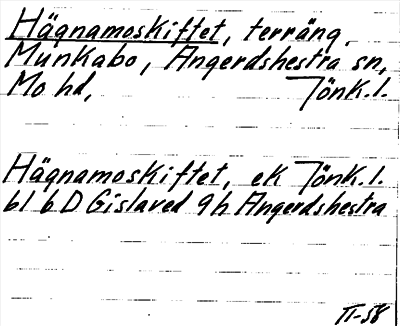 Hägnamoskiftet, terräng,
Munkabo, Angerdshestra sn,
Mo hd, Jönk.l.
Hägnamoskiftet, ek Jönk.l.
bl 6D Gislaved 9h Angerdshestra
II-58